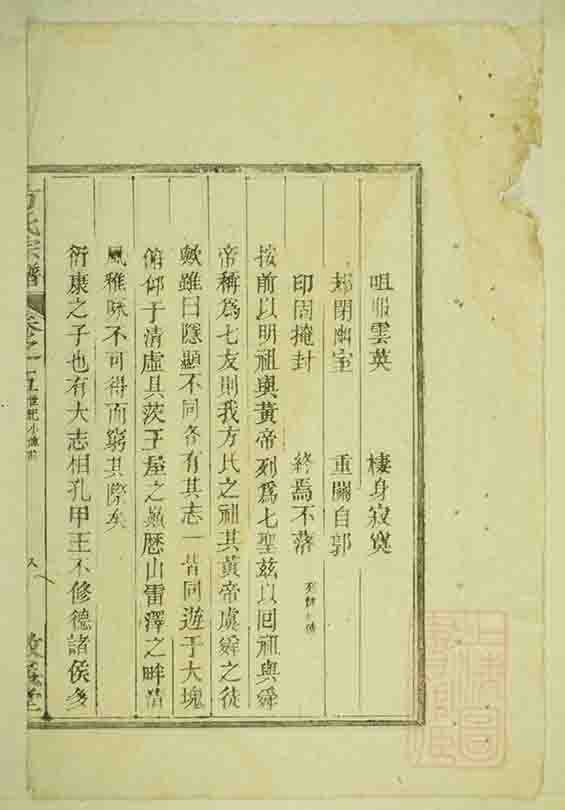 咀嚼雲英　棲身寂寞
却閉幽室　重關自郭
印固掩封　終焉不落　列仙傳
按前以明祖與黃帝列爲七聖茲以回祖與舜
帝稱爲七友則我方氏之祖其黃帝虞舜之徒
歟雖曰隱顯不同各有其志一皆同遊于大塊
俯仰于清虛具茨王屋之巔歷山雷澤之畔
風雅不可得而窮其際矣
衍康之子也有大志相孔甲王不修德諸侯多
方氏宗譜
卷之
五
世紀小傳